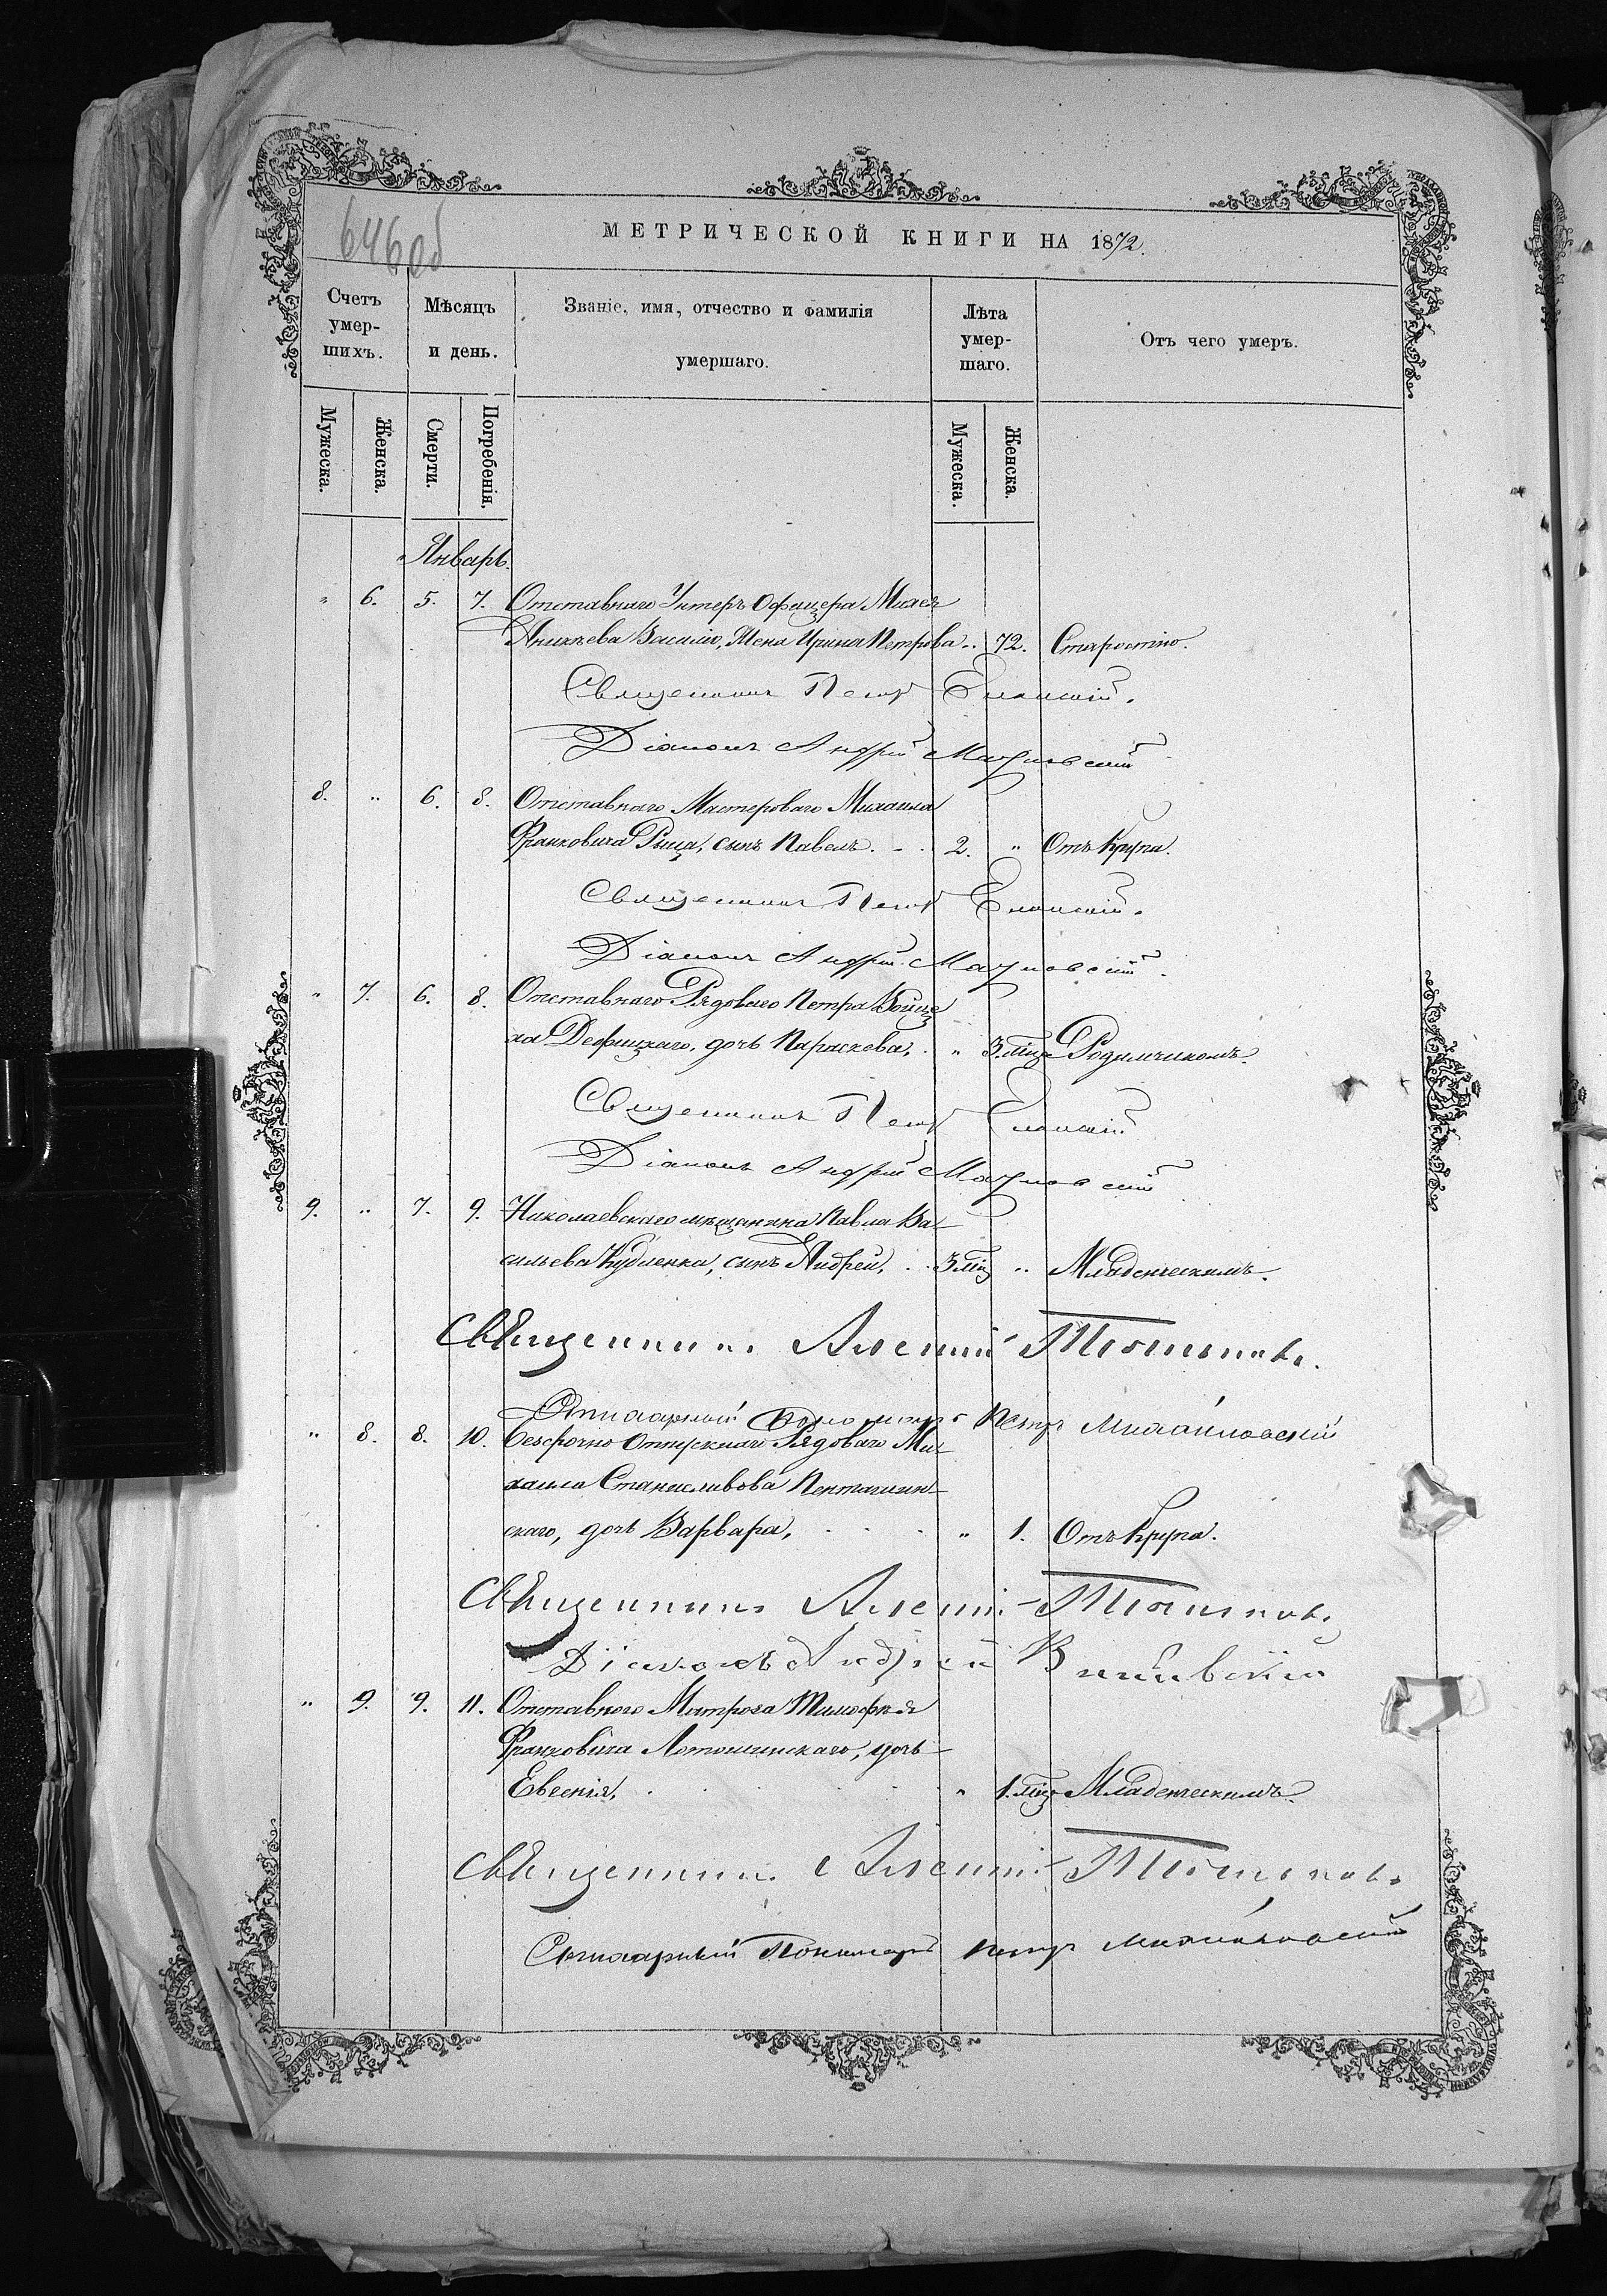 646об
МЕТРИЧЕСКОЙ КНИГИ НА 1872.
Счетъ умер-шихъ.
Мѣсяцъ и день.
Званіе, имя, отчество и фамилія умершаго.
Лѣта умер-шаго.
Отъ чего умеръ.
Мужеска.
Женска.
Смерти.
Погребенія.
Мужеска.
Женска.
Январь.
" 6. 5. 7. Отставнаго Унтеръ Офицера
Василія, Жена Ирина Петрова .. 72. Старостію.
Священникъ Петръ Еланскій.
Діаконъ Андрей
8. " 6. 8. Отставнаго Мастероваго Михаила
Франковича сынъ Павелъ. - . 2. " Отъ Крупа.
Священникъ Петръ Еланскій.
Діаконъ Андрей
" 7. 6. 8. Отставнаго Рядоваго Петра
дочь Параскева, . " 3. мѣс Родимчикомъ.
Священникъ Петръ Еланскій
Діаконъ Андрей
9. " 7. 9. Николаевскаго мѣщанина Павла Ва-
сильева Кудленка, сынъ Андрей, . . 3 мѣс " Младенческимъ.
Священникъ Алексій
Петръ Михайловскій
" 8. 8. 10. Безсрочно Отпускнаго Рядоваго Ми-
хаила Станиславова
скаго, дочь Варвара, . . . . " 1. Отъ Крупа.
Священникъ Алексій
Діаконъ Андрей
" 9. 9. 11. Отставного Матроса Тимофѣя
Франковича Лотошинскаго, дочь
Евесгія, . . . . " 1. мѣс Младенческимъ.
Священникъ Алексій
Пономарь Петръ Михайловскій